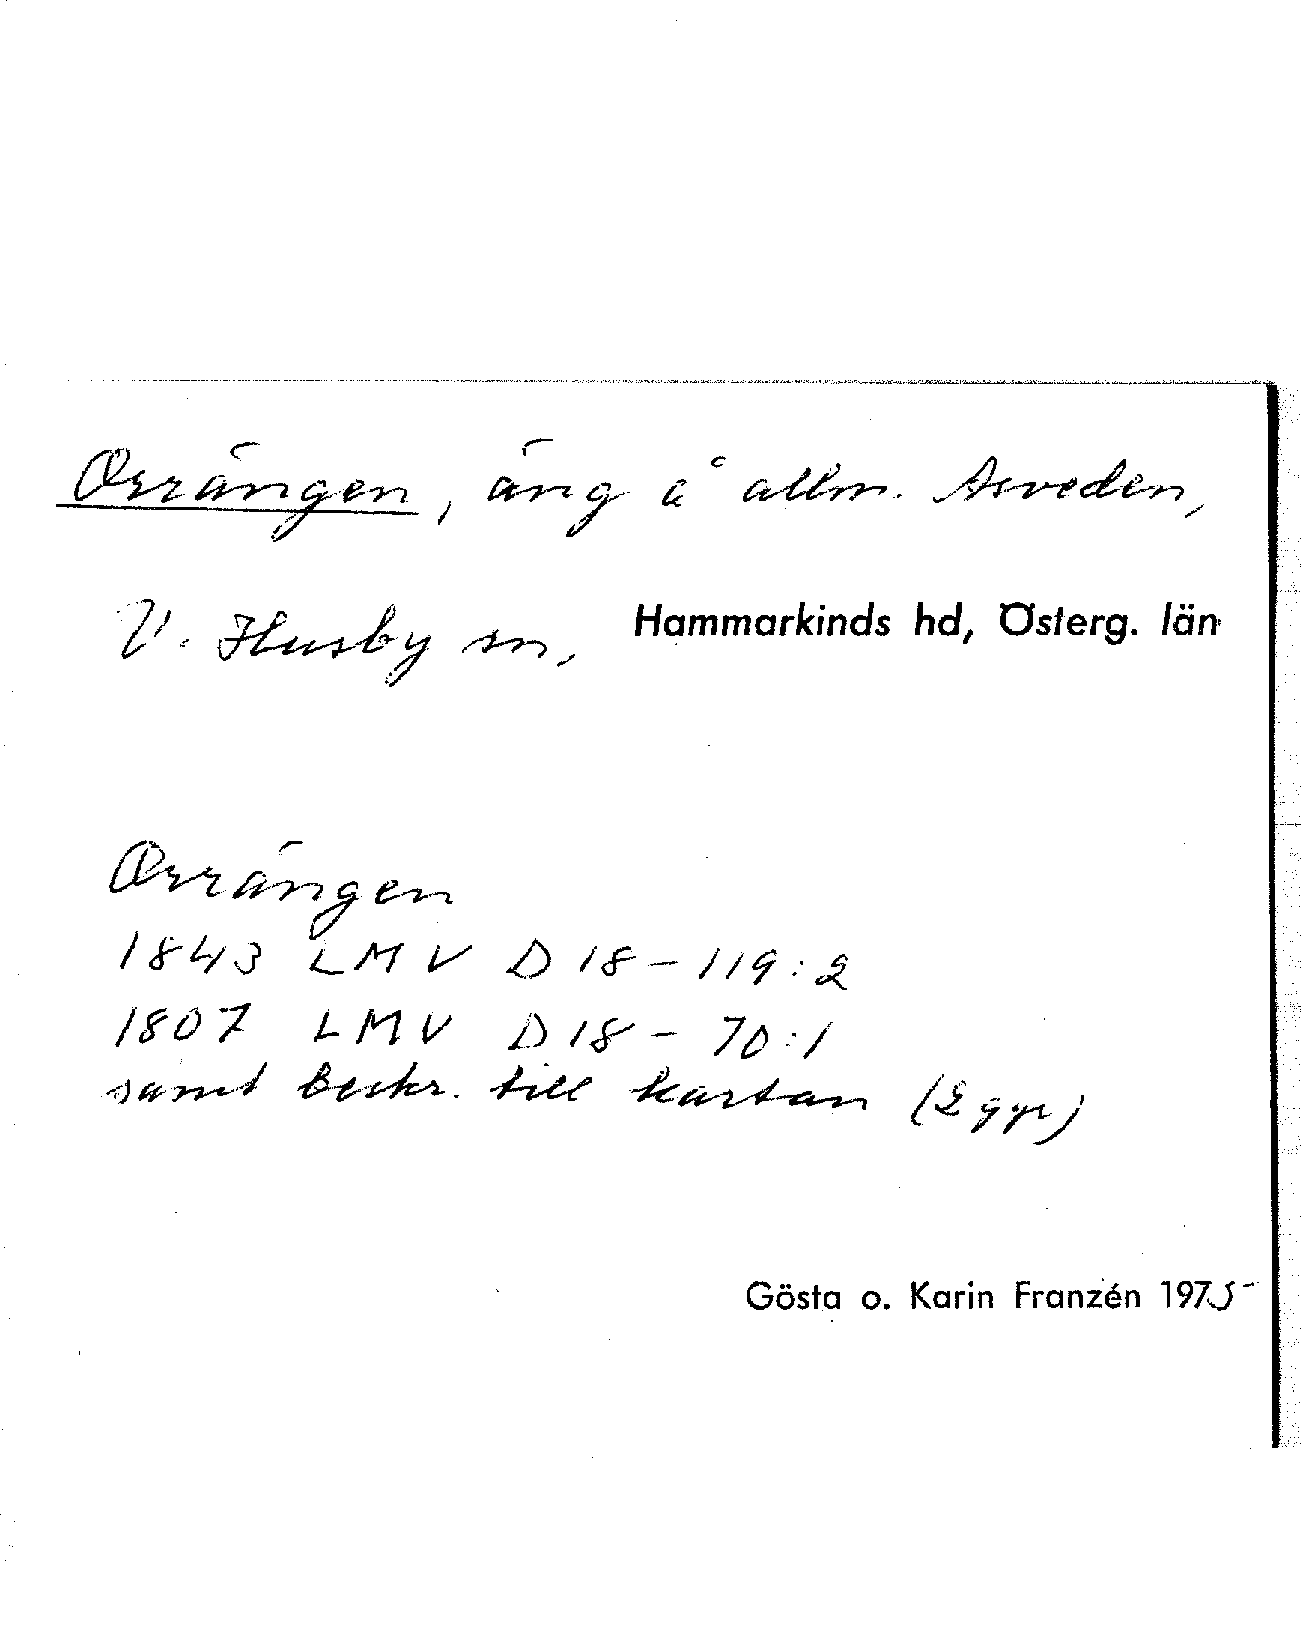 Orrängen, äng å allm. Asveden,
V. Husby sn, Hammarkinds hd, Österg. län
Orrängen
1843 LMV D 18 - 119:2
1807 LMV D 18 - 70:1
samt beskr. till kartan (2 ggr)
Gösta o. Karin Franzén 1975